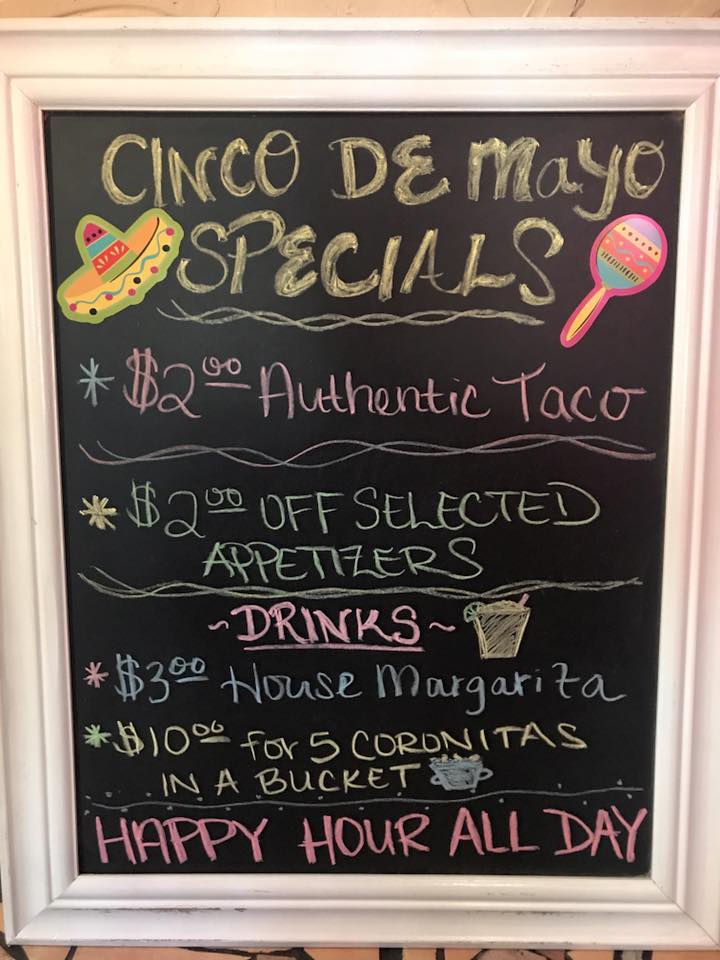 CINCO DE MAYO
SPECIALS
* $2.00 Authentic Taco
* $2.00 OFF SELECTED
APPETIZERS
~DRINKS~
* $3.00 House Margarita
* $10.00 for 5 CORONITAS
IN A BUCKET
HAPPY HOUR ALL DAY